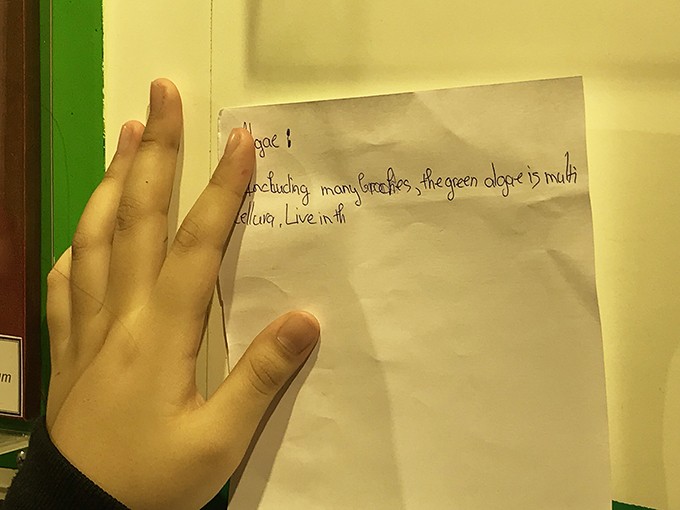 lgae :
Including many branches, the green algae is multi
cellura, Live in th
m